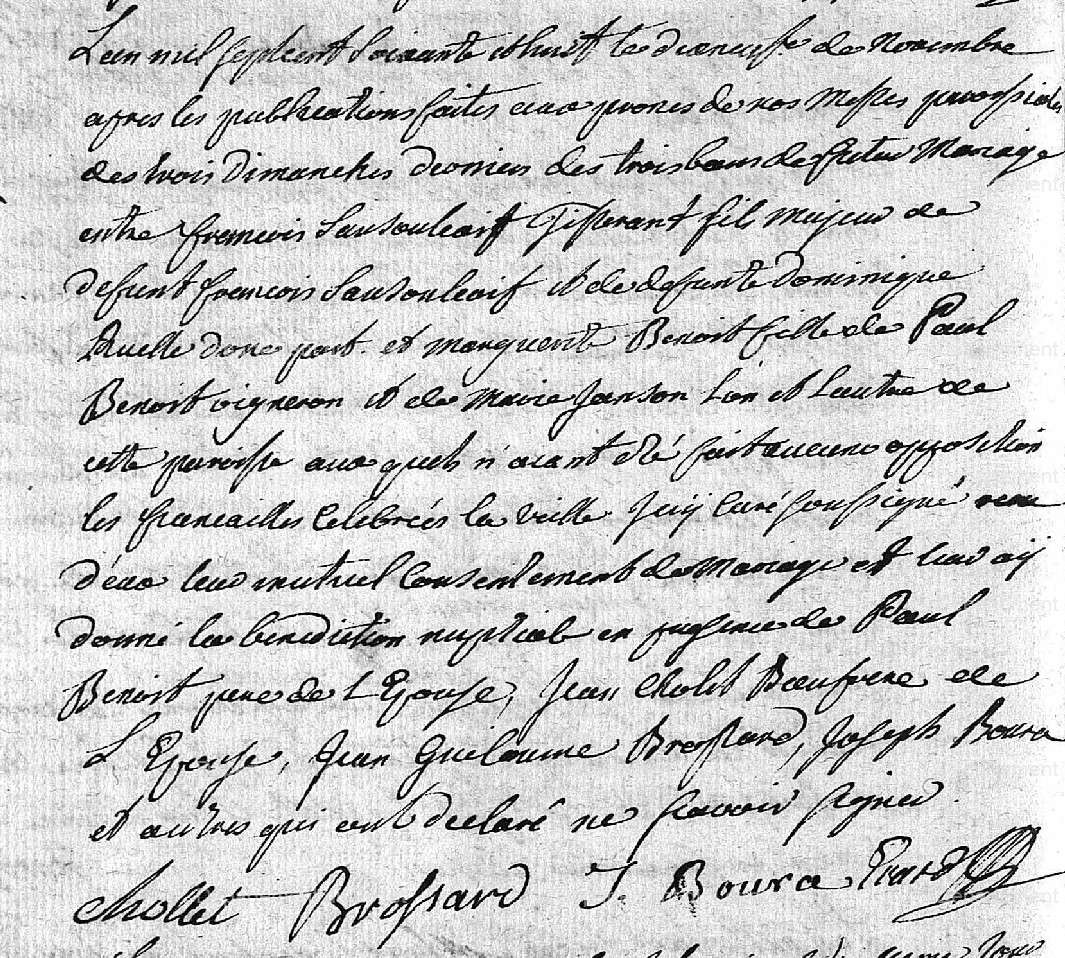 L'an mil sept cent soixante et huit le dixneufe de Novembre
apres les publications faites aux prones de nos Messes paroissiales
des trois Dimanches derniers des trois bans de futur Mariage
entre francois Sansoulcoif Tisserant fils majeur de
defunt francois Sansoulcoif et de defunte Dominique
Ruelle d'une part. et marguerite Benoit fille de Paul
Benoit vigneron et de Marie Janson L'un et Lautre de
cette paroisse aux quels n'aiant été fait aucune opposition
les fiancailles Celebrées la veille Jay Curé soussigné recu
d'eux leur mutuel Consentement de Mariage et leur aÿ
donné la benediction nuptiale en presence de Paul
Benoit pere de L'Epouse, Jean Cholet Beaufrere de
L'Epouse, Jean Guilaume Brossard, Joseph Boura
et autres qui ont declaré ne scavoir signer.
Chollet Brossard J. Boura